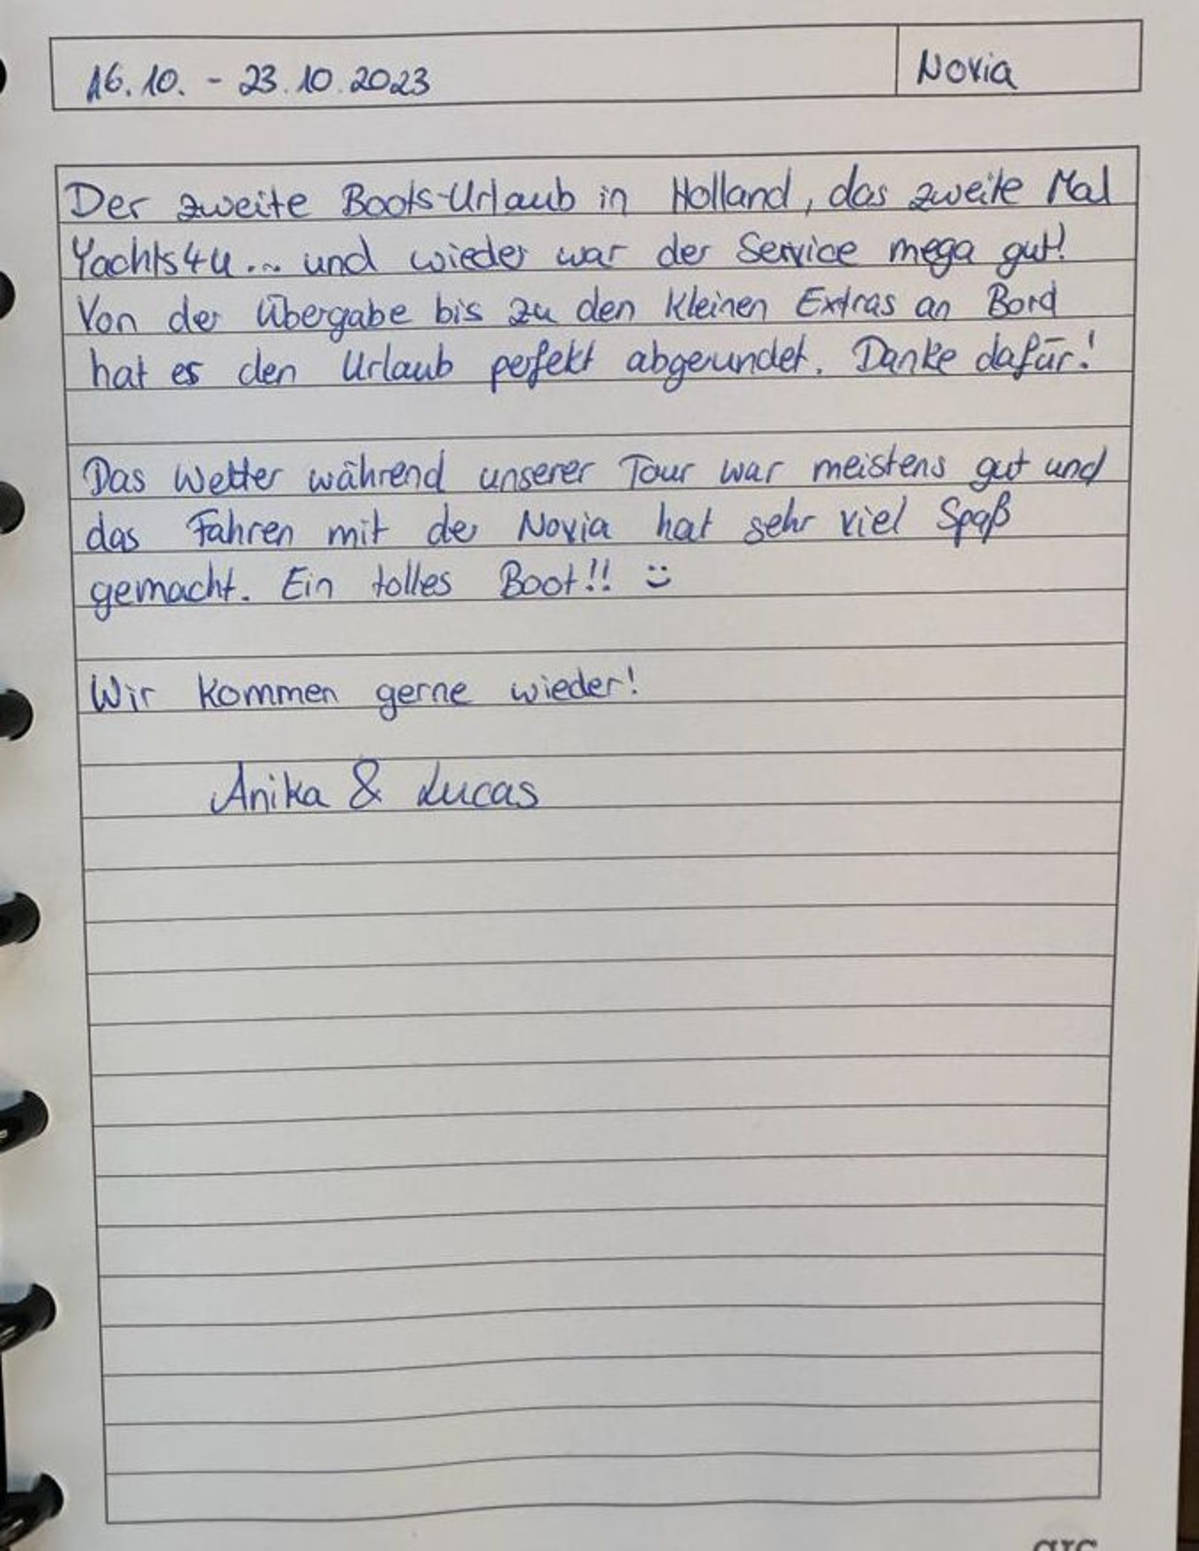 16.10. - 23.10.2023
Novia
Der zweite Boots-Urlaub in Holland, das zweite Mal
Yachts4u... und wieder war der Service mega gut!
Von der Übergabe bis zu den kleinen Extras an Bord
hat es den Urlaub perfekt abgerundet. Danke dafür!
Das Wetter während unserer Tour war meistens gut und
das Fahren mit der Novia hat sehr viel Spaß
gemacht. Ein tolles Boot!! :)
Wir kommen gerne wieder!
Anika & Lucas